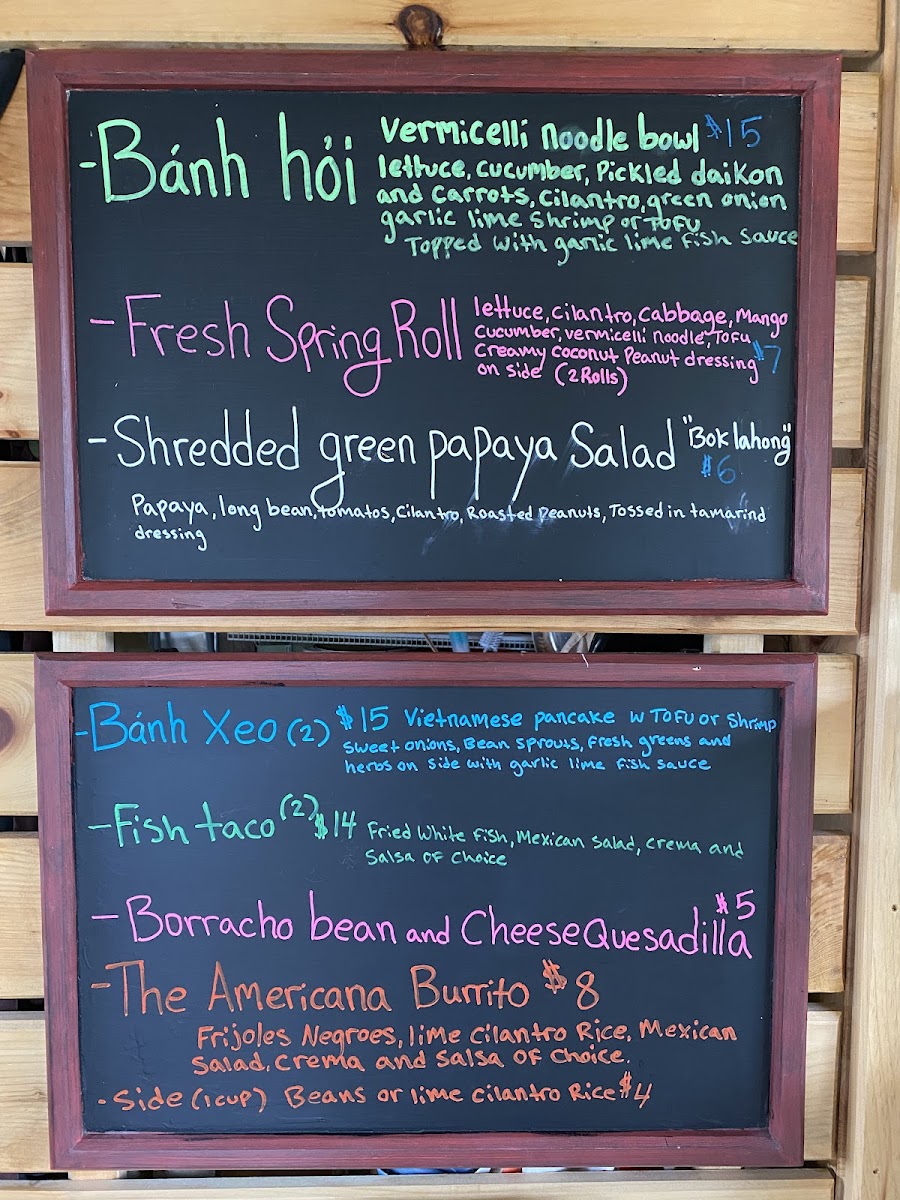 -Bánh hỏi vermicelli noodle bowl $15
lettuce, cucumber, Pickled daikon
and carrots, cilantro, green onion
garlic lime shrimp or TOFU
Topped with garlic lime fish sauce
-Fresh Spring Roll lettuce, cilantro, cabbage, Mango
cucumber, vermicelli noodle, TOFU
creamy coconut Peanut dressing $7
on side (2 Rolls)
-Shredded green papaya Salad "Bok lahong"
$6
Papaya, long bean, tomatos, cilantro, Roasted Peanuts, Tossed in tamarind
dressing
-Bánh Xeo (2) $15 Vietnamese pancake w TOFU or Shrimp
sweet onions, Bean sprouts, fresh greens and
herbs on side with garlic lime fish sauce
-Fish taco (2) $14 Fried white fish, Mexican salad, crema and
salsa of choice
-Borracho bean and Cheese Quesadilla $5
-The Americana Burrito $8
Frijoles Negroes, lime cilantro Rice, Mexican
Salad, crema and salsa of choice.
-Side (1cup) Beans or lime cilantro Rice $4